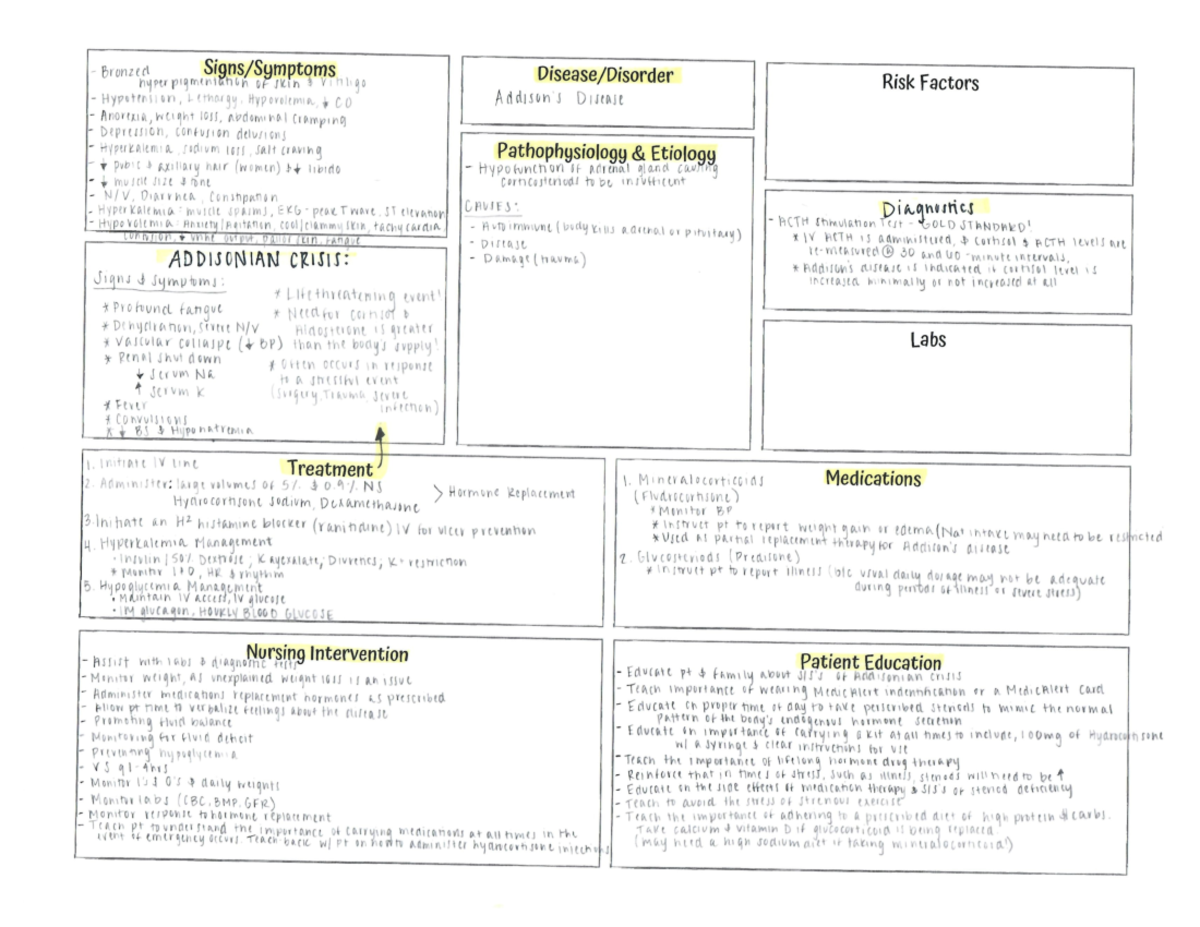 Signs/Symptoms
- Bronzed
hyperpigmentation of skin & Vitiligo
- Hypotension, Lethargy, Hypovolemia, ↓ CO
- Anorexia, weight loss, abdominal cramping
- Depression, confusion delusions
- Hyperkalemia, sodium loss, salt craving
- ↓ pubic & axillary hair (women) & ↓ libido
- ↓ muscle size & tone
- N/V, Diarrhea, Constipation
- Hyperkalemia - muscle spasms, EKG - peak T wave, ST elevation
- Hypovolemia - Anxiety/Agitation, cool/clammy skin, tachycardia,
confusion, ↓ urine output, pale skin, fatigue
ADDISONIAN CRISIS:
Signs & Symptoms:
* Profound fatgue
* Dehydration, severe N/V
* Vascular collaspe (↓ BP)
* Renal shut down
↓ Serum Na
↑ Serum K
* Fever
* Convulsions
* ↓ BS & Hyponatremia
* Life threatening event!
* Need for cortisol &
Aldosterone is greater
than the body's supply!
* Often occurs in response
to a stressful event
(Surgery, Trauma, Severe
infection)
Disease/Disorder
Addison's Disease
Pathophysiology & Etiology
- Hypofunction of adrenal gland causing
corticosteriods to be insufficent
CAUSES:
- Autoimmune (body kills adrenal or pituitary)
- Disease
- Damage (trauma)
Risk Factors
Diagnostics
- ACTH Stimulation Test - GOLD STANDARD!
* IV ACTH is administered, & cortisol & ACTH levels are
re-measured @ 30 and 60 -minute intervals,
* Addison's disease is indicated if cortisol level is
increased minimally or not increased at all
Labs
Treatment
1. Initiate IV line
2. Administer: large volumes of 5% & 0.9% NS
Hydrocortisone Sodium, Dexamethasone
> Hormone Replacement
3. Initiate an H² histamine blocker (ranitidine) IV for ulcer prevention
4. Hyperkalemia Management
• Insulin/50% Dextrose; Kayexalate; Diuretics; K+ restriction
* Monitor I+O, HR & rhythm
5. Hypoglycemia Management
• Maintain IV access, IV glucose
• IM glucagon, HOURLY BLOOD GLUCOSE
Medications
1. Mineralocorticoids
(Fludrocortisone)
* Monitor BP
* Instruct pt to report weight gain or edema (Na+ intake may need to be restricted
* Used as partial replacement therapy for Addison's disease
2. Glucosteriods (Predisone)
* Instruct pt to report illness (b/c usual daily dosage may not be adequate
during periods of illness or severe stress)
Nursing Intervention
- Assist with labs & diagnostic tests
- Monitor weight, as unexplained weight loss is an issue
- Administer medications replacement hormones as prescribed
- Allow pt time to verbalize feelings about the disease
- Promoting fluid balance
- Monitoring for fluid deficit
- Preventing hypoglycemia
- VS q1-4hrs
- Monitor I's & O's & daily weights
- Monitor labs (CBC, BMP, GFR)
- Monitor response to hormone replacement
- Teach pt to understand the importance of carrying medications at all times in the
event of emergency occurs. Teach back w/ pt on how to administer hydrocortisone injections
Patient Education
- Educate pt & family about S/S's of Addisonian crisis
- Teach importance of wearing MedicAlert indentification or a MedicAlert Card
- Educate on proper time of day to take perscribed steriods to mimic the normal
pattern of the body's endogenous hormone secretion
- Educate on importance of carrying a kit at all times to include, 100mg of Hydrocortisone
w/ a syringe & clear instructions for use
- Teach the importance of lifelong hormone drug therapy
- Reinforce that in times of stress, such as illness, steriods will need to be ↑
- Educate on the side effects of medication therapy & S/S's of steriod deficiency
- Teach to avoid the stress of strenous exercise
- Teach the importance of adhering to a prescribed diet of high protein & carbs.
Take calcium & vitamin D if glucocorticoid is being replaced
(may need a high sodium diet if taking mineralocorticoid!)